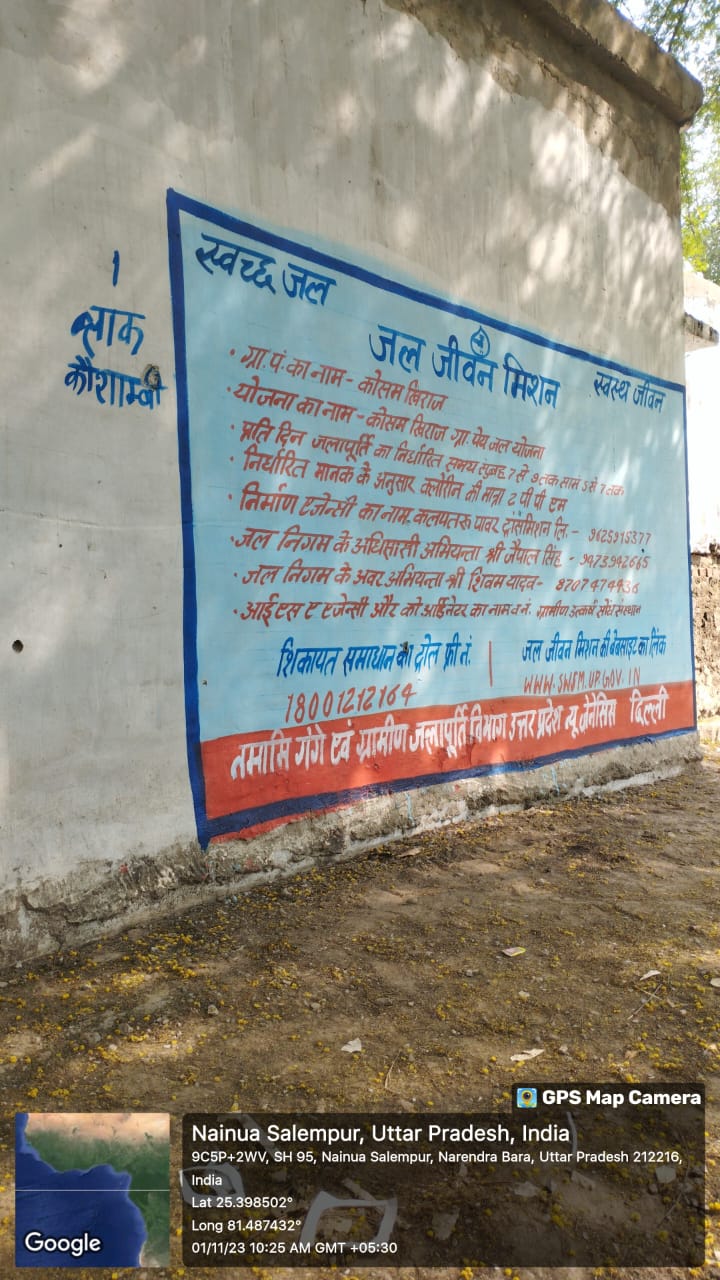 १
ब्लाक
कौशाम्बी
स्वच्छ जल
जल जीवन मिशन
स्वस्थ जीवन
• ग्रा. पं. का नाम - कोसम खिराज
• योजना का नाम - कोसम खिराज ग्रा. पेय जल योजना
• प्रति दिन जलापूर्ति का निर्धारित समय सुबह 7 से 9 तक सायं 5 से 7 तक
• निर्धारित मानक के अनुसार क्लोरीन की मात्रा 2 पी पी एम
• निर्माण एजेन्सी का नाम कलपतरू पावर ट्रांसमिशन लि. - 9625915377
• जल निगम के अधिशासी अभियन्ता श्री जैपाल सिंह - 9473942665
• जल निगम के अवर अभियन्ता श्री शिवम यादव - 8707474936
• आई एस ए एजेन्सी और को आर्डिनेटर का नाम व नं. ग्रामीण उत्कर्ष सोध संस्थान
शिकायत समाधान का ट्रोल फ्री नं. | जल जीवन मिशन की बेबसाइट का लिंक
18001212164 WWW.SWSM.UP.GOV.IN
नमामि गंगे एवं ग्रामीण जलापूर्ति विभाग उत्तर प्रदेश न्यू जेनेसिस दिल्ली
GPS Map Camera
Nainua Salempur, Uttar Pradesh, India
9C5P+2WV, SH 95, Nainua Salempur, Narendra Bara, Uttar Pradesh 212216,
India
Lat 25.398502°
Long 81.487432°
01/11/23 10:25 AM GMT +05:30
Google